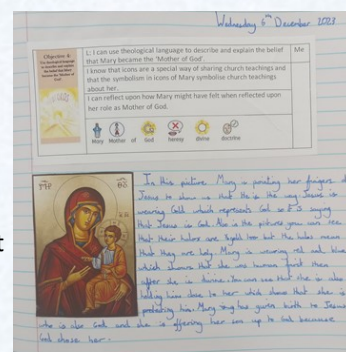 Wednesday 6th December 2023
Objective 4:
L: I can use theological language to describe and explain the belief
that Mary became the 'Mother of God'.
Me
I know that icons are a special way of sharing church teachings and
that the symbolism in icons of Mary symbolise church teachings
about her.
I can reflect upon how Mary might have felt when reflected upon
her role as Mother of God.
Mary Mother of God heresy divine doctrine
In this picture Mary is pointing her fingers at
Jesus to show us that He is the way. Jesus is
wearing Gold which represents God so it is saying
that Jesus is God. Also in the picture you can see
that their halos are but the halos mean
that they are holy. Mary is wearing red and blue
which shows that she was human first then
after she is divine. You can see that she is also
holding him close to her which shows that she is
protecting him. Mary has given birth to Jesus
who is also God and she is offering her son up to God because
God chose her.
t